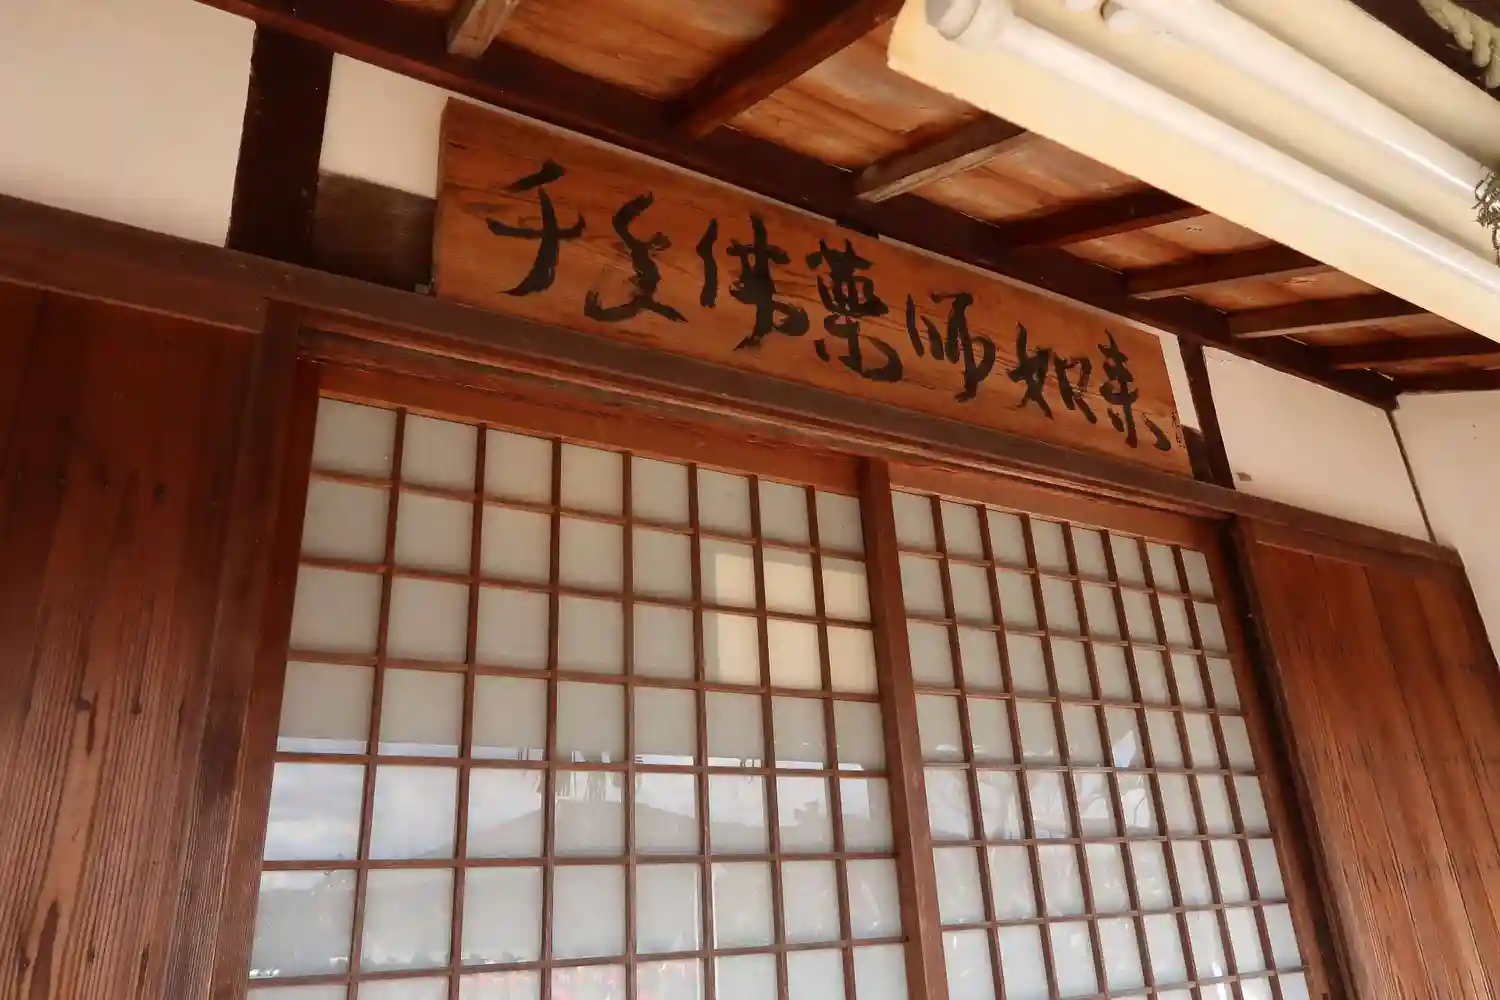 千躰佛薬師如来